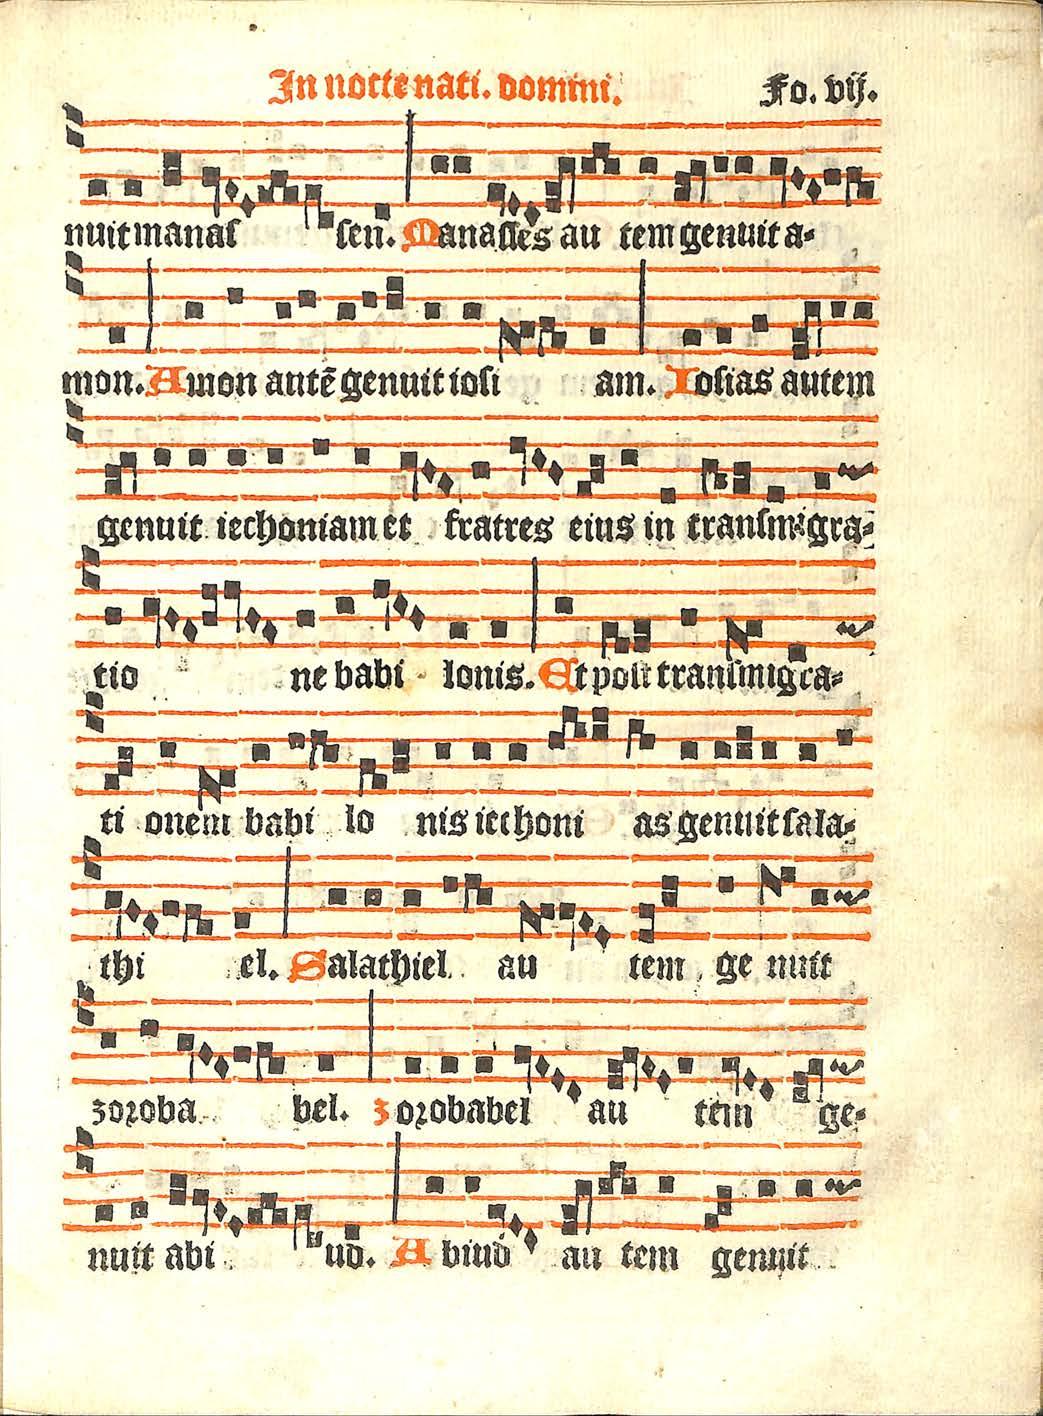 In nocte nati. domini. Fo. vij.
nuit manas sen. Manasses au tem genuit a-
mon. Amon autē genuit iosi am. Iosias autem
genuit iechoniam et fratres eius in transmigra-
tio ne babi lonis. Et post transmigra-
ti onem babi lo nis iechoni as genuit sala-
thi el. Salathiel au tem ge nuit
zoroba bel. zorobabel au tem ge-
nuit abi ud. A biud au tem genuit